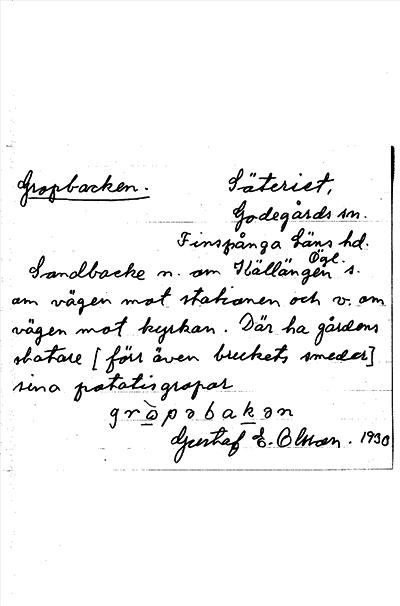 Gropbacken.
Säteriet,
Godegårds sn.
Finspånga Läns hd.
Ögl.
Sandbacke n. om Källängen s.
om vägen mot stationen och v. om
vägen mot kyrkan. Där ha gårdens
statare [förr även bruckets smeder]
sina potatisgropar
Gustaf E. Olsson. 1930